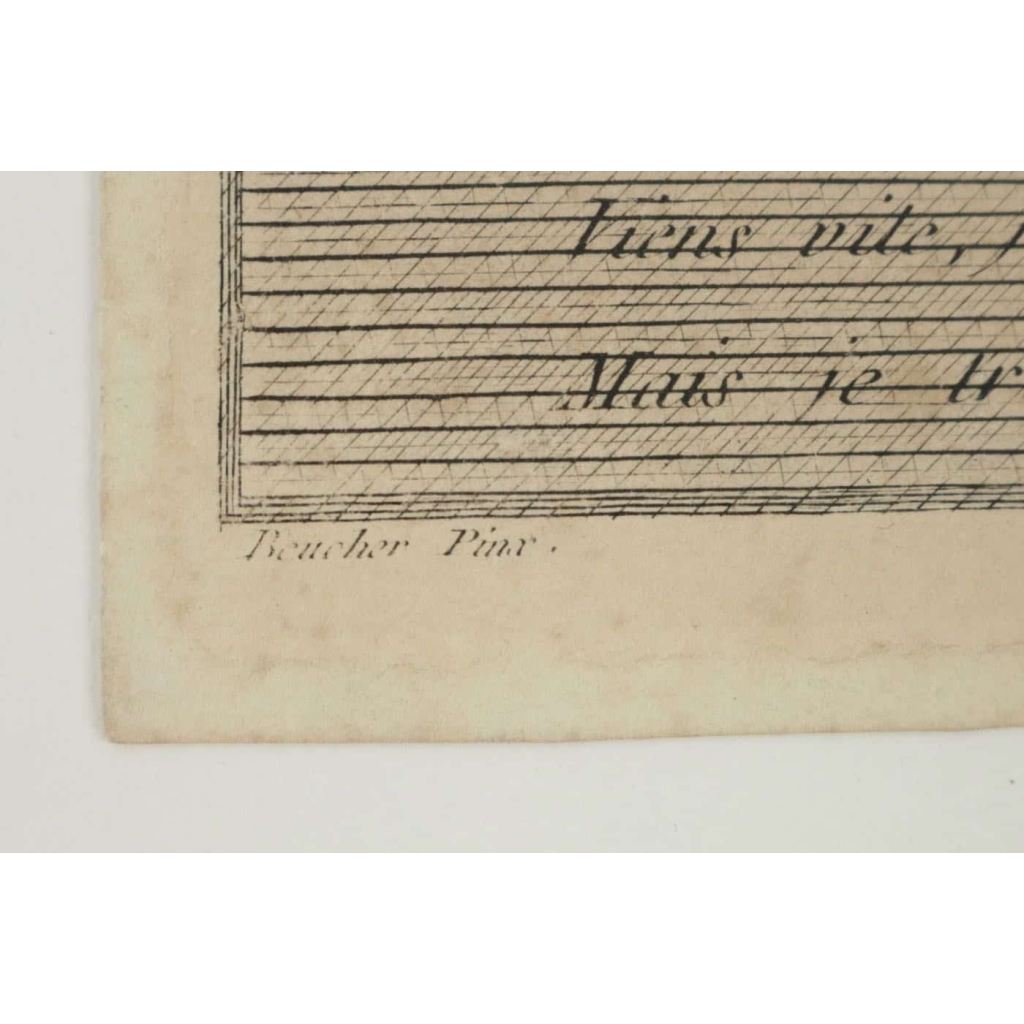 Viens vite, j
Mais je tr
Boucher Pinx.